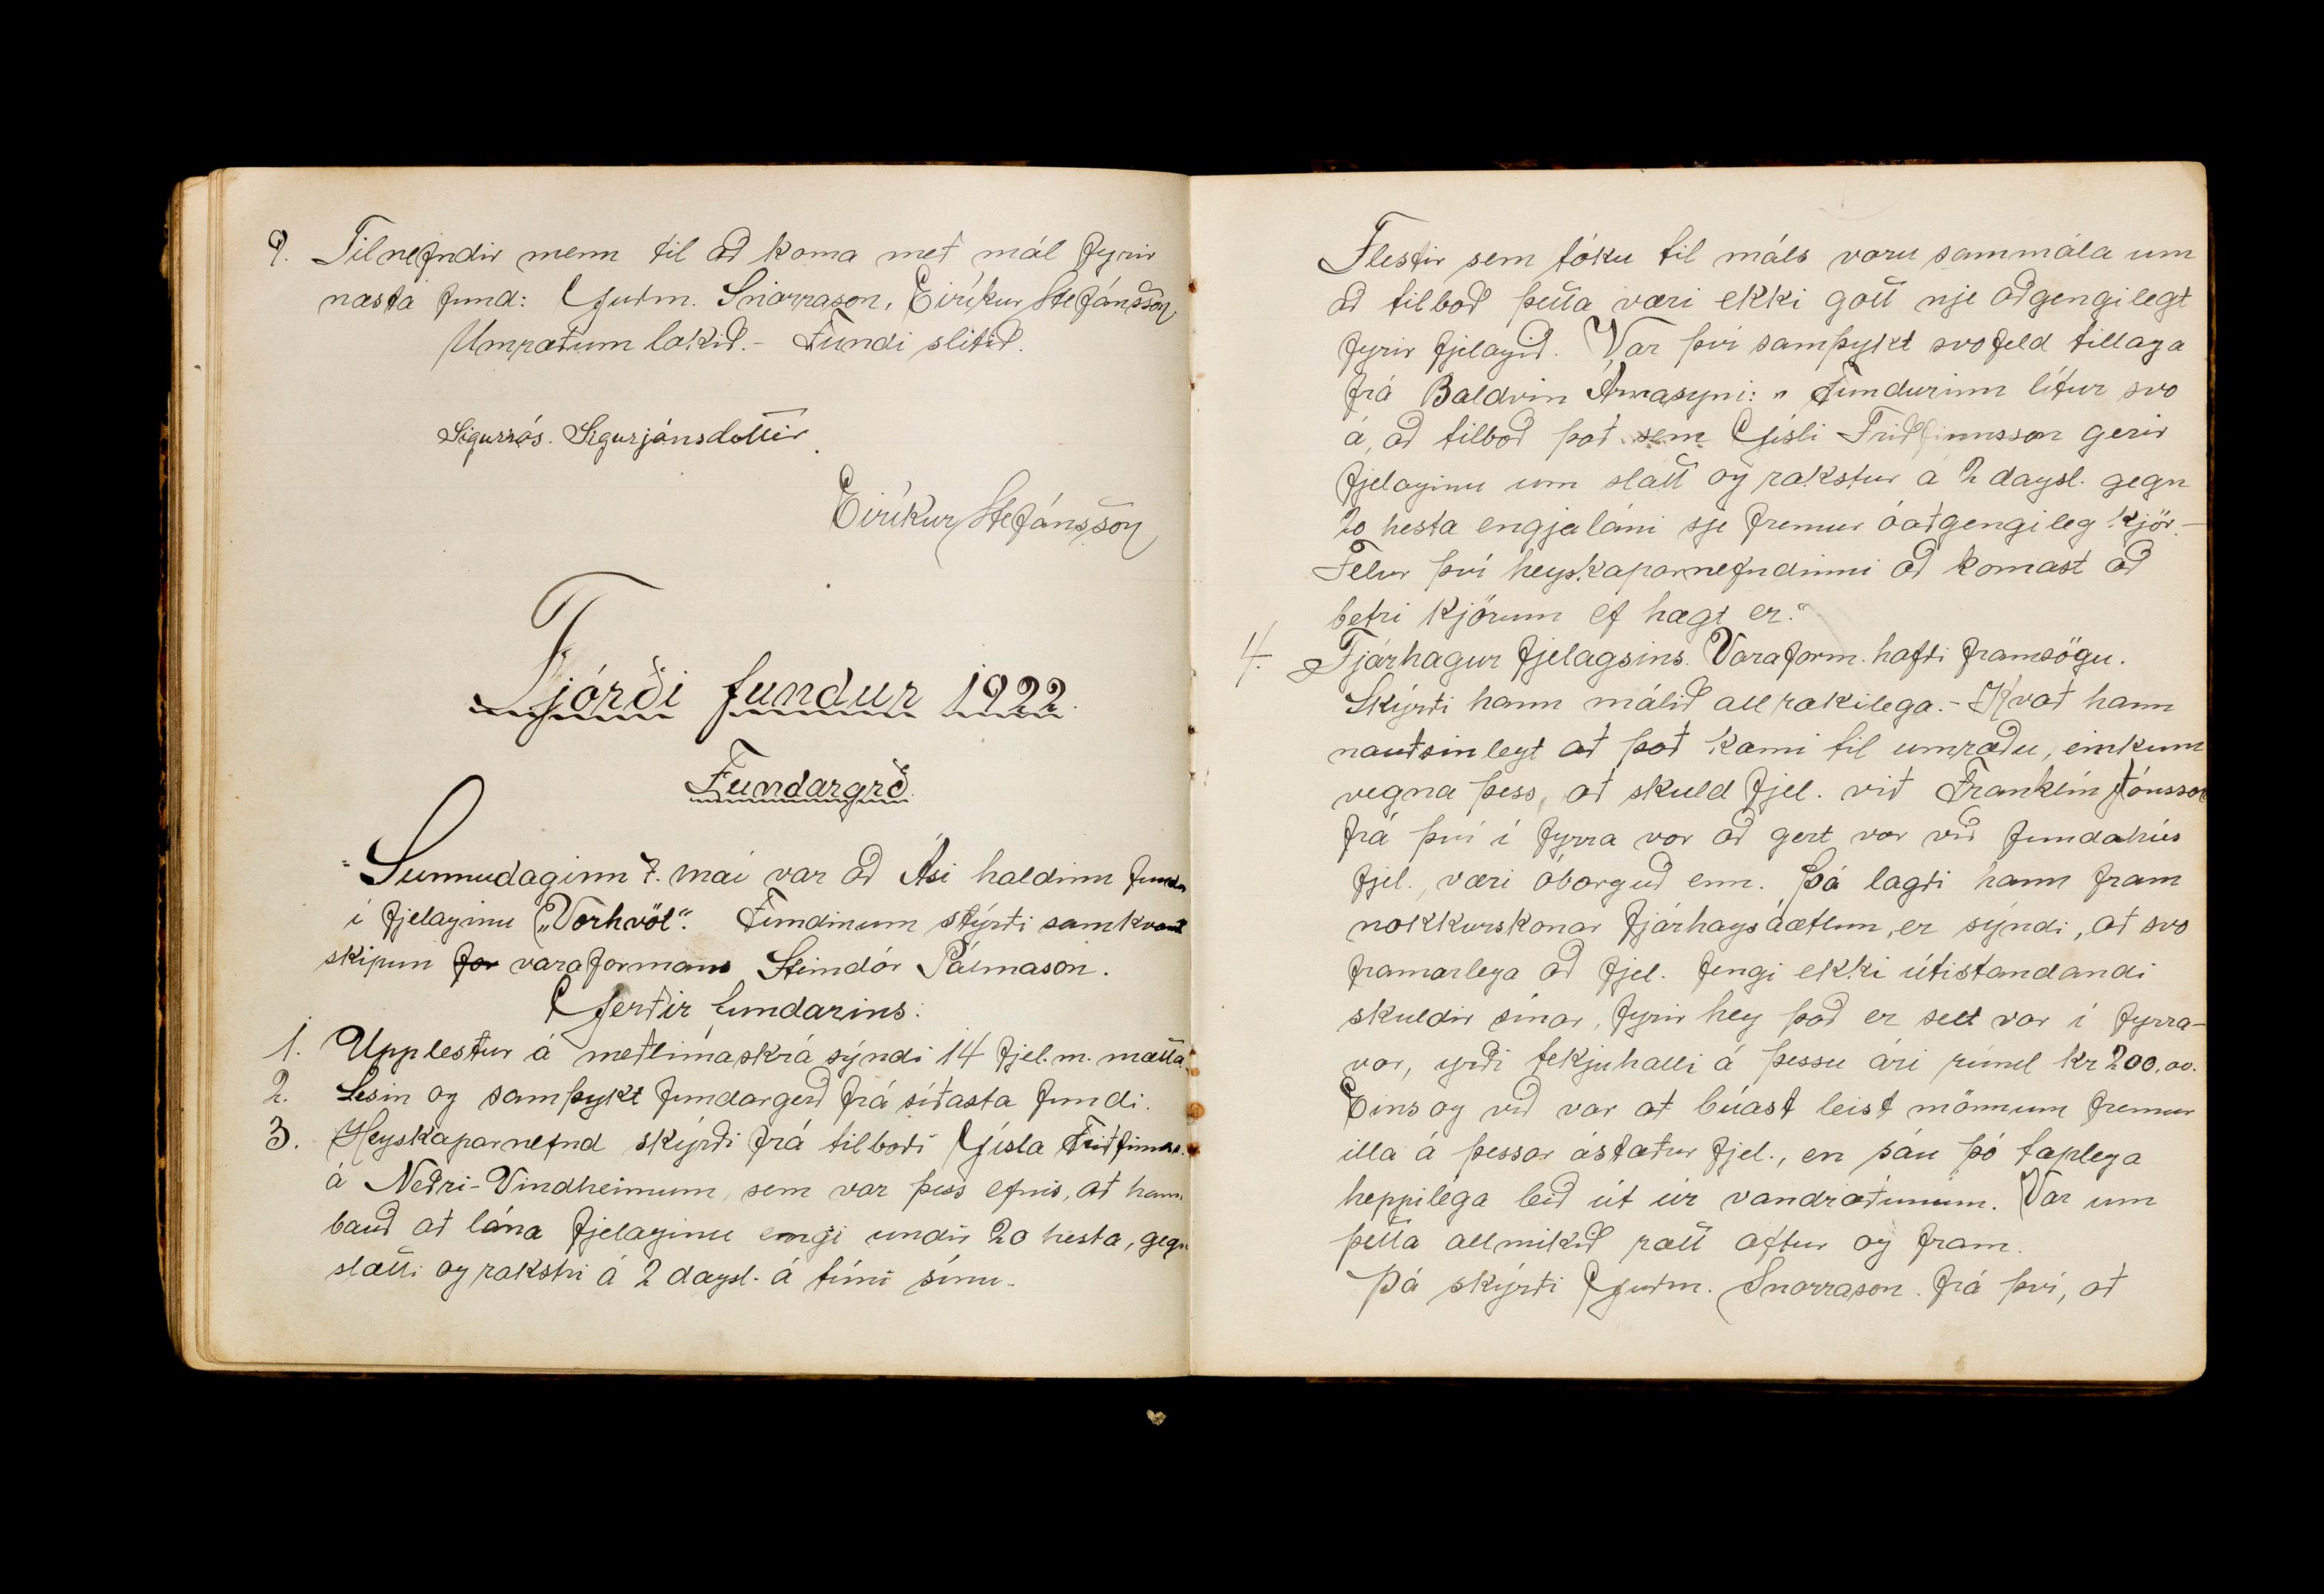 9. Tilnefndir menn til að koma með mál fyrir
næsta fund: Guðm. Snorrason, Eiríkur Stefánsson.
Umræðum lokið. - Fundi slitið.
Sigurrós. Sigurjónsdóttir.
Eiríkur Stefánsson
Fjórði fundur 1922.
Fundargrð.
Sunnudaginn 7. maí var að Ási haldinn fundr
í fjelaginu „Vorhvöt“. Fundinum stýrði samkvæmt
skipun for varaformans Steindór Pálmason.
Gerðir fundarins:
1. Upplestur á meðlimaskrá sýndi 14 fjel.m. mætta.
2. Lesin og samþykt fundargerð frá síðasta fundi.
3. Heyskaparnefnd skýrði frá tilboði Gísla Friðfinnss.
á Neðri-Vindheimum, sem var þess efnis, að hann
bauð að lána fjelaginu engi undir 20 hesta, gegn
slætti og rakstri á 2 dagsl. á túni sínu.
Flestir sem tóku til máls voru sammála um
að tilboð þetta væri ekki gott nje aðgengilegt
fyrir fjelagið. Var því samþykt svofeld tillaga
frá Baldvin Árnasyni: „Fundurinn lítur svo
á, að tilboð það sem Gísli Friðfinnsson gerir
fjelaginu um slátt og rakstur á 2 dagsl. gegn
20 hesta engjaláni sje fremur óaðgengileg kjör. -
Felur því heyskaparnefndinni að komast að
betri kjörum ef hægt er.“
4. Fjárhagur fjelagsins. Varaform. hafði framsögu.
Skýrði hann málið all rækilega. - Kvað hann
nauðsinlegt að það kæmi til umræðu, einkum
vegna þess, að skuld fjel. við Franklín Jónsson
frá því í fyrra vor að gert var við fundahús
fjel., væri óborguð enn. Þá lagði hann fram
nokkurskonar fjárhagsáætlun, er sýndi, að svo
framarlega að fjel. fengi ekki útistandandi
skuldir sínar, fyrir hey það er selt var í fyrra-
vor, yrði tekjuhalli á þessu ári rúml kr 200,00.
Eins og við var að búast leist mönnum fremur
illa á þessar ástæður fjel., en sáu þó tæplega
heppilega leið út úr vandræðunum. Var um
þetta allmikið rætt aftur og fram.
Þá skýrði Guðm. Snorrason frá því, að